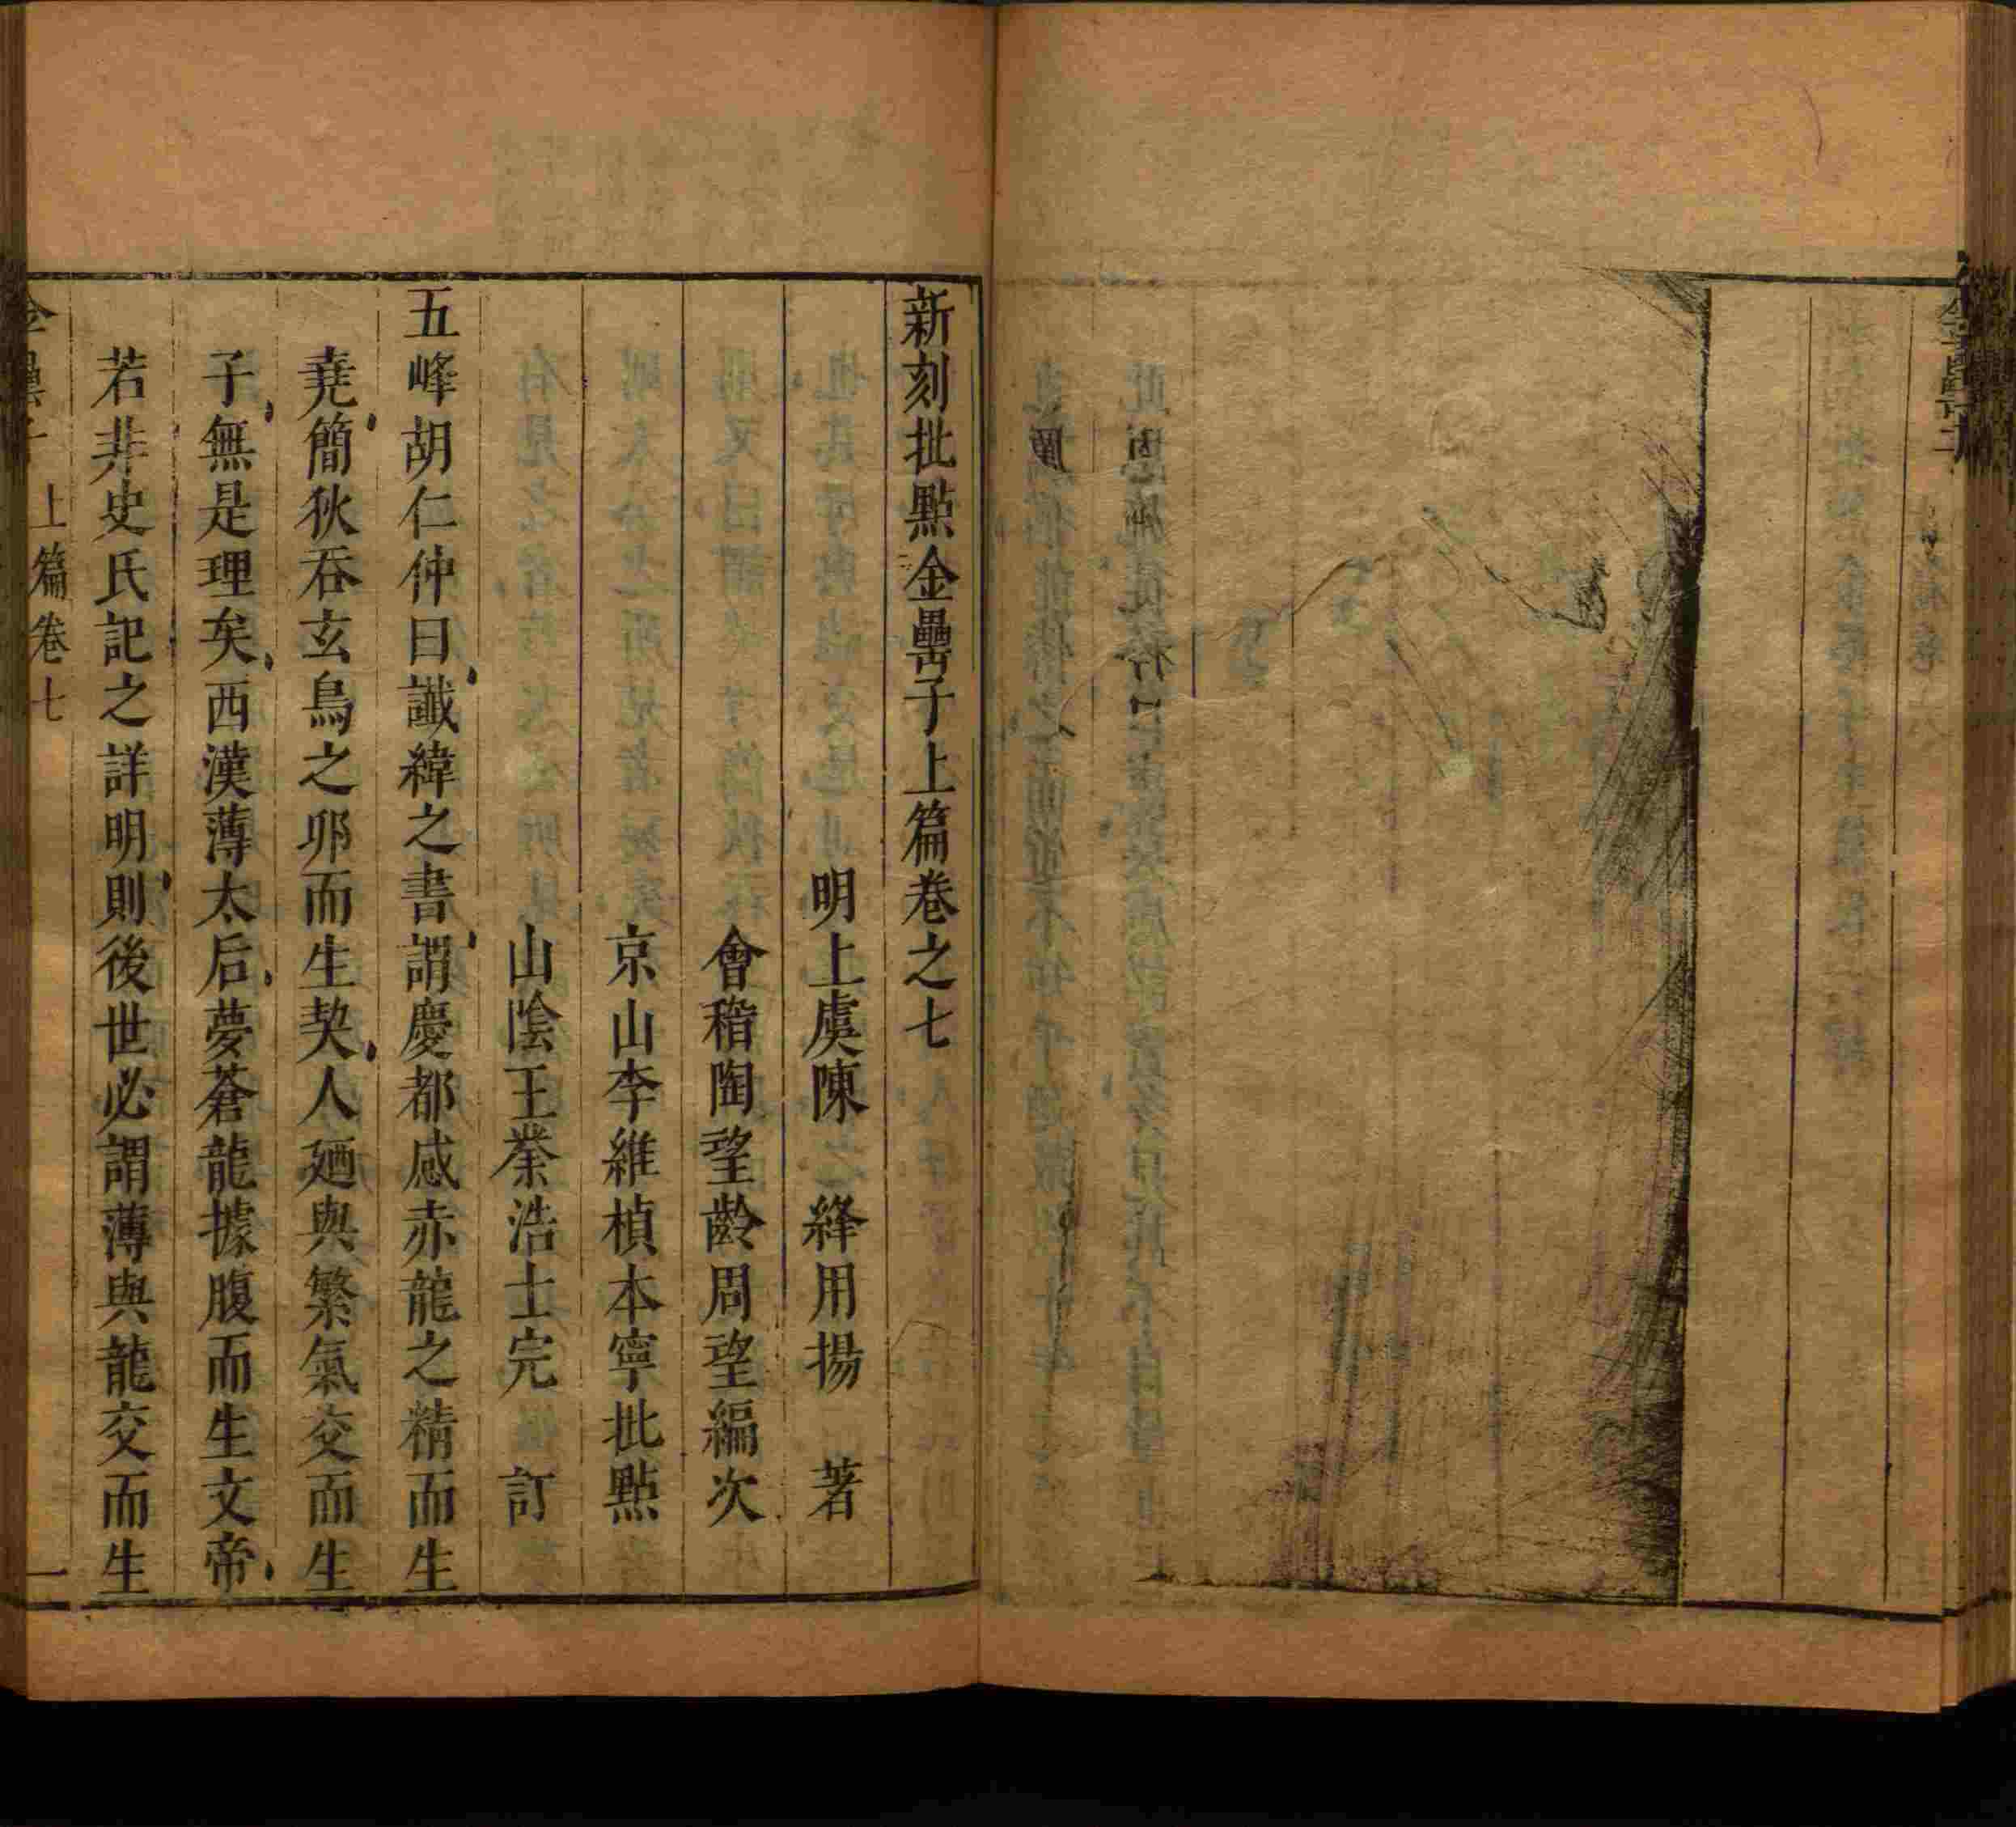 新刻批點金罍子上篇卷之七
明上虞陳 絳用揚 著
會稽陶望齡周望編次
京山李維楨本寧批點
山陰王業浩士完 訂
五峰胡仁仲曰讖緯之書謂慶都感赤龍之精而生
堯簡狄吞玄鳥之卵而生契人廼與繁氣交而生
子無是理矣西漢薄太后夢蒼龍據腹而生文帝
若非史氏記之詳明則後世必謂薄與龍交而生
金罍子 上篇卷七 一